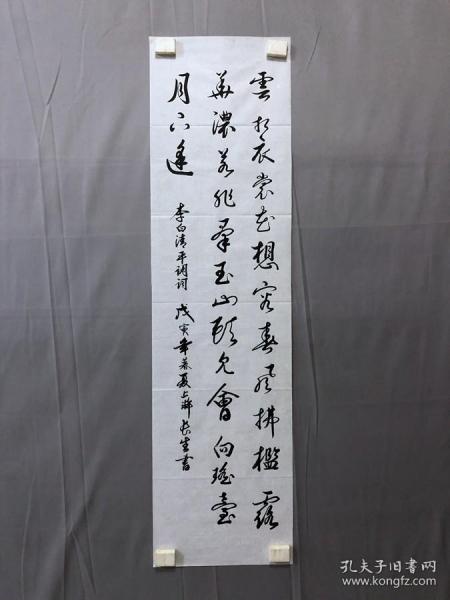 雲想衣裳花想容春風拂檻露
華濃若非羣玉山頭見會向瑤臺
月下逢
李白清平調词 戊寅年暮夏上澣长生书
孔夫子旧书网
www.kongfz.com